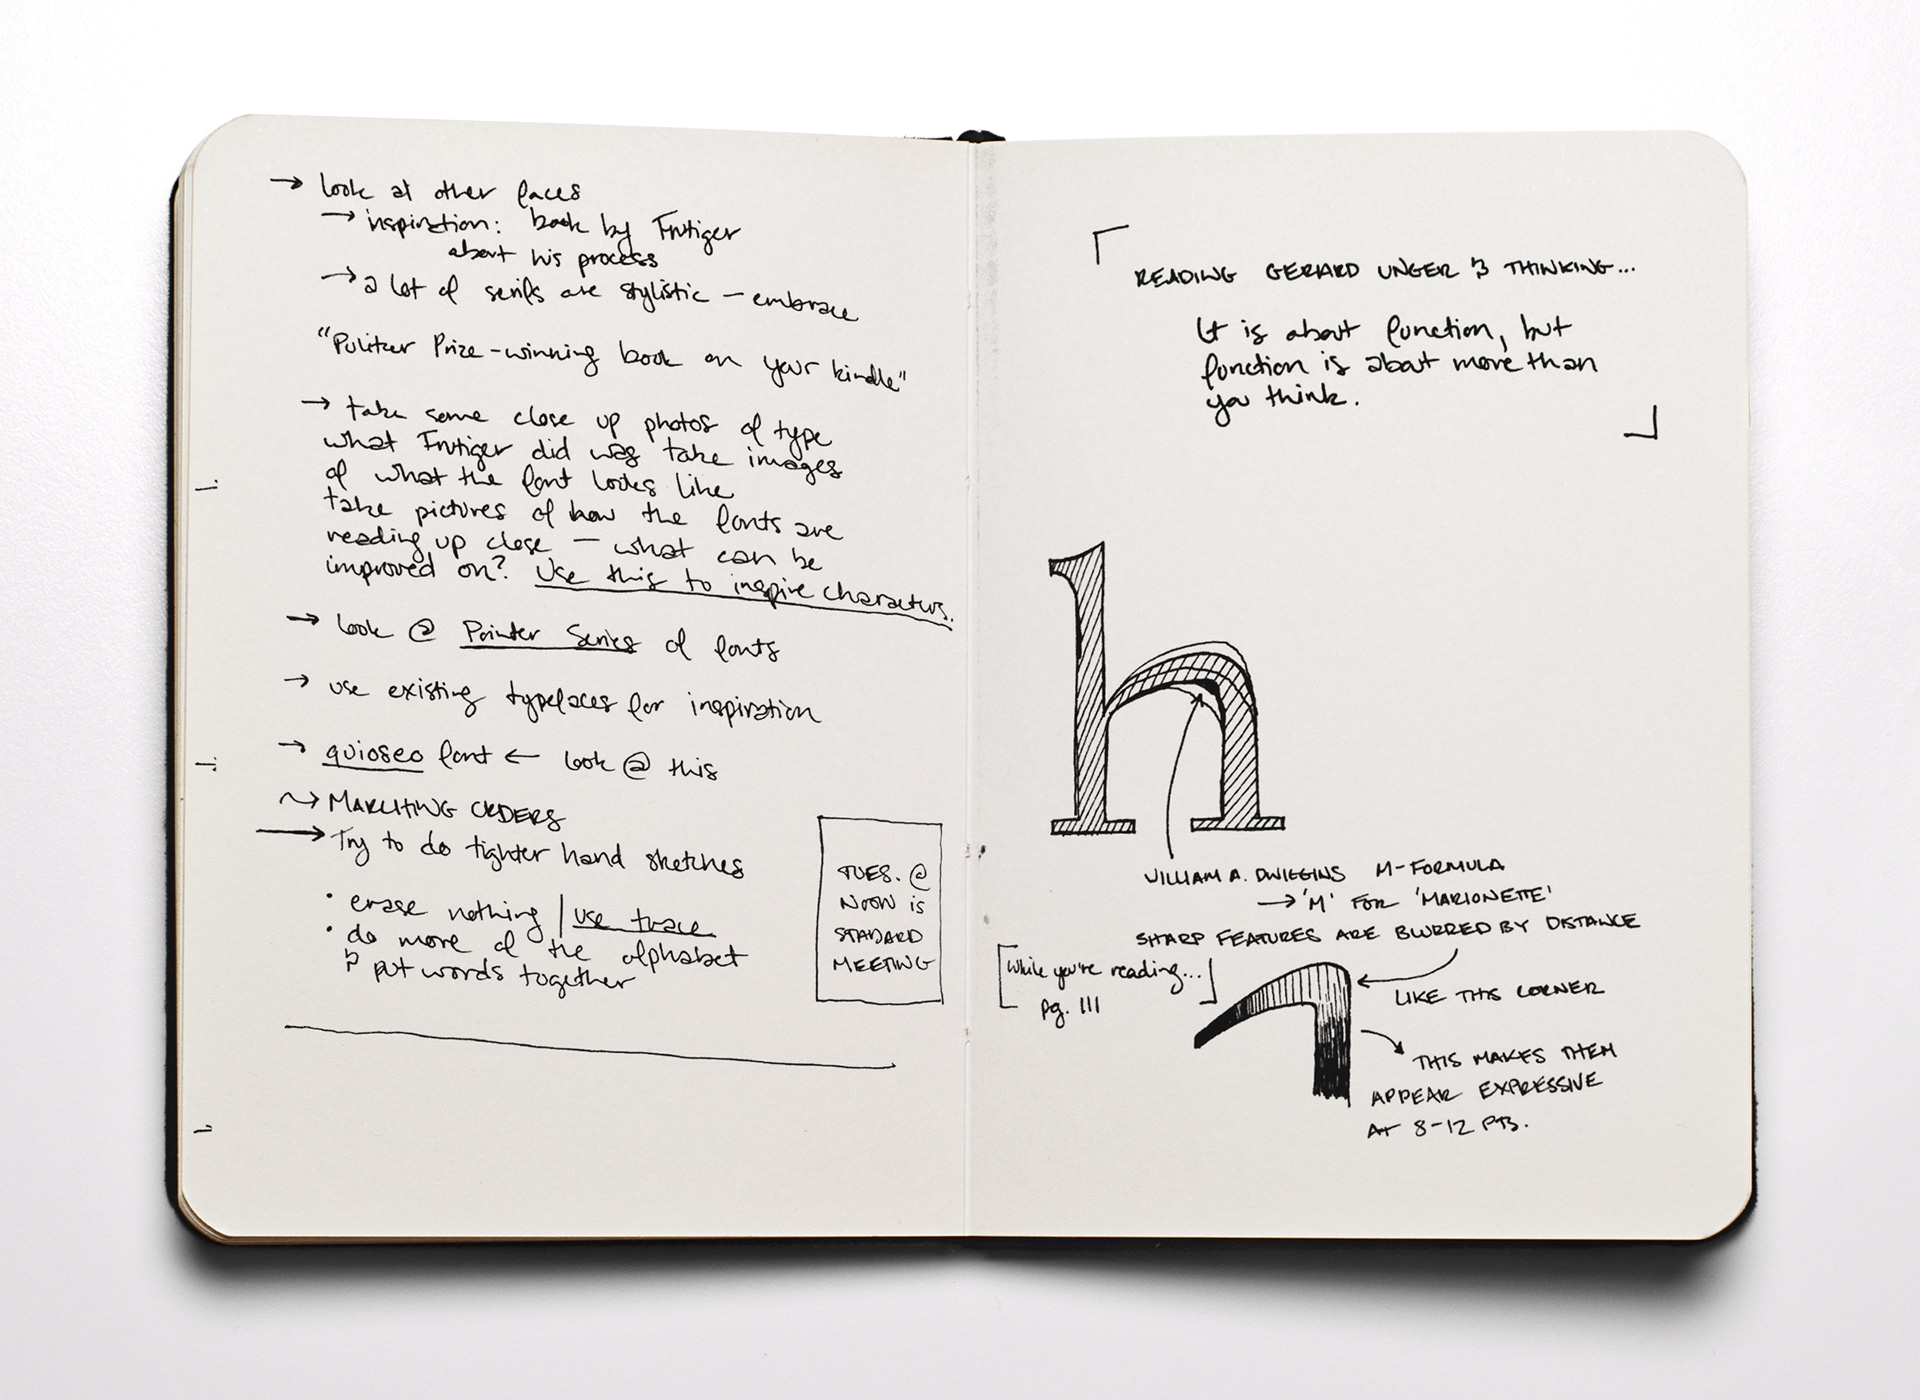 → look at other faces
→ inspiration: book by Frutiger
about his process
→ a lot of serifs are stylistic – embrace
"Pulitzer Prize-winning book on your kindle"
→ take some close up photos of type
what Frutiger did was take images
of what the font looks like
take pictures of how the fonts are
reading up close – what can be
improved on? Use this to inspire characters.
→ look @ Pointer Series of fonts
→ use existing typefaces for inspiration
→ quioseo font ← look @ this
→ MARCHING ORDERS
→ Try to do tighter hand sketches
• erase nothing | use trace
• do more of the alphabet
& put words together
TUES. @
NOON is
STADARD
MEETING
READING GERARD UNGER & THINKING...
It is about function, but
function is about more than
you think.
h
WILLIAM A. DWIGGINS M-FORMULA
→ 'M' FOR 'MARIONETTE'
SHARP FEATURES ARE BLURRED BY DISTANCE
[While you're reading...]
pg. 111
LIKE THIS CORNER
THIS MAKES THEM
APPEAR EXPRESSIVE
AT 8-12 PTS.